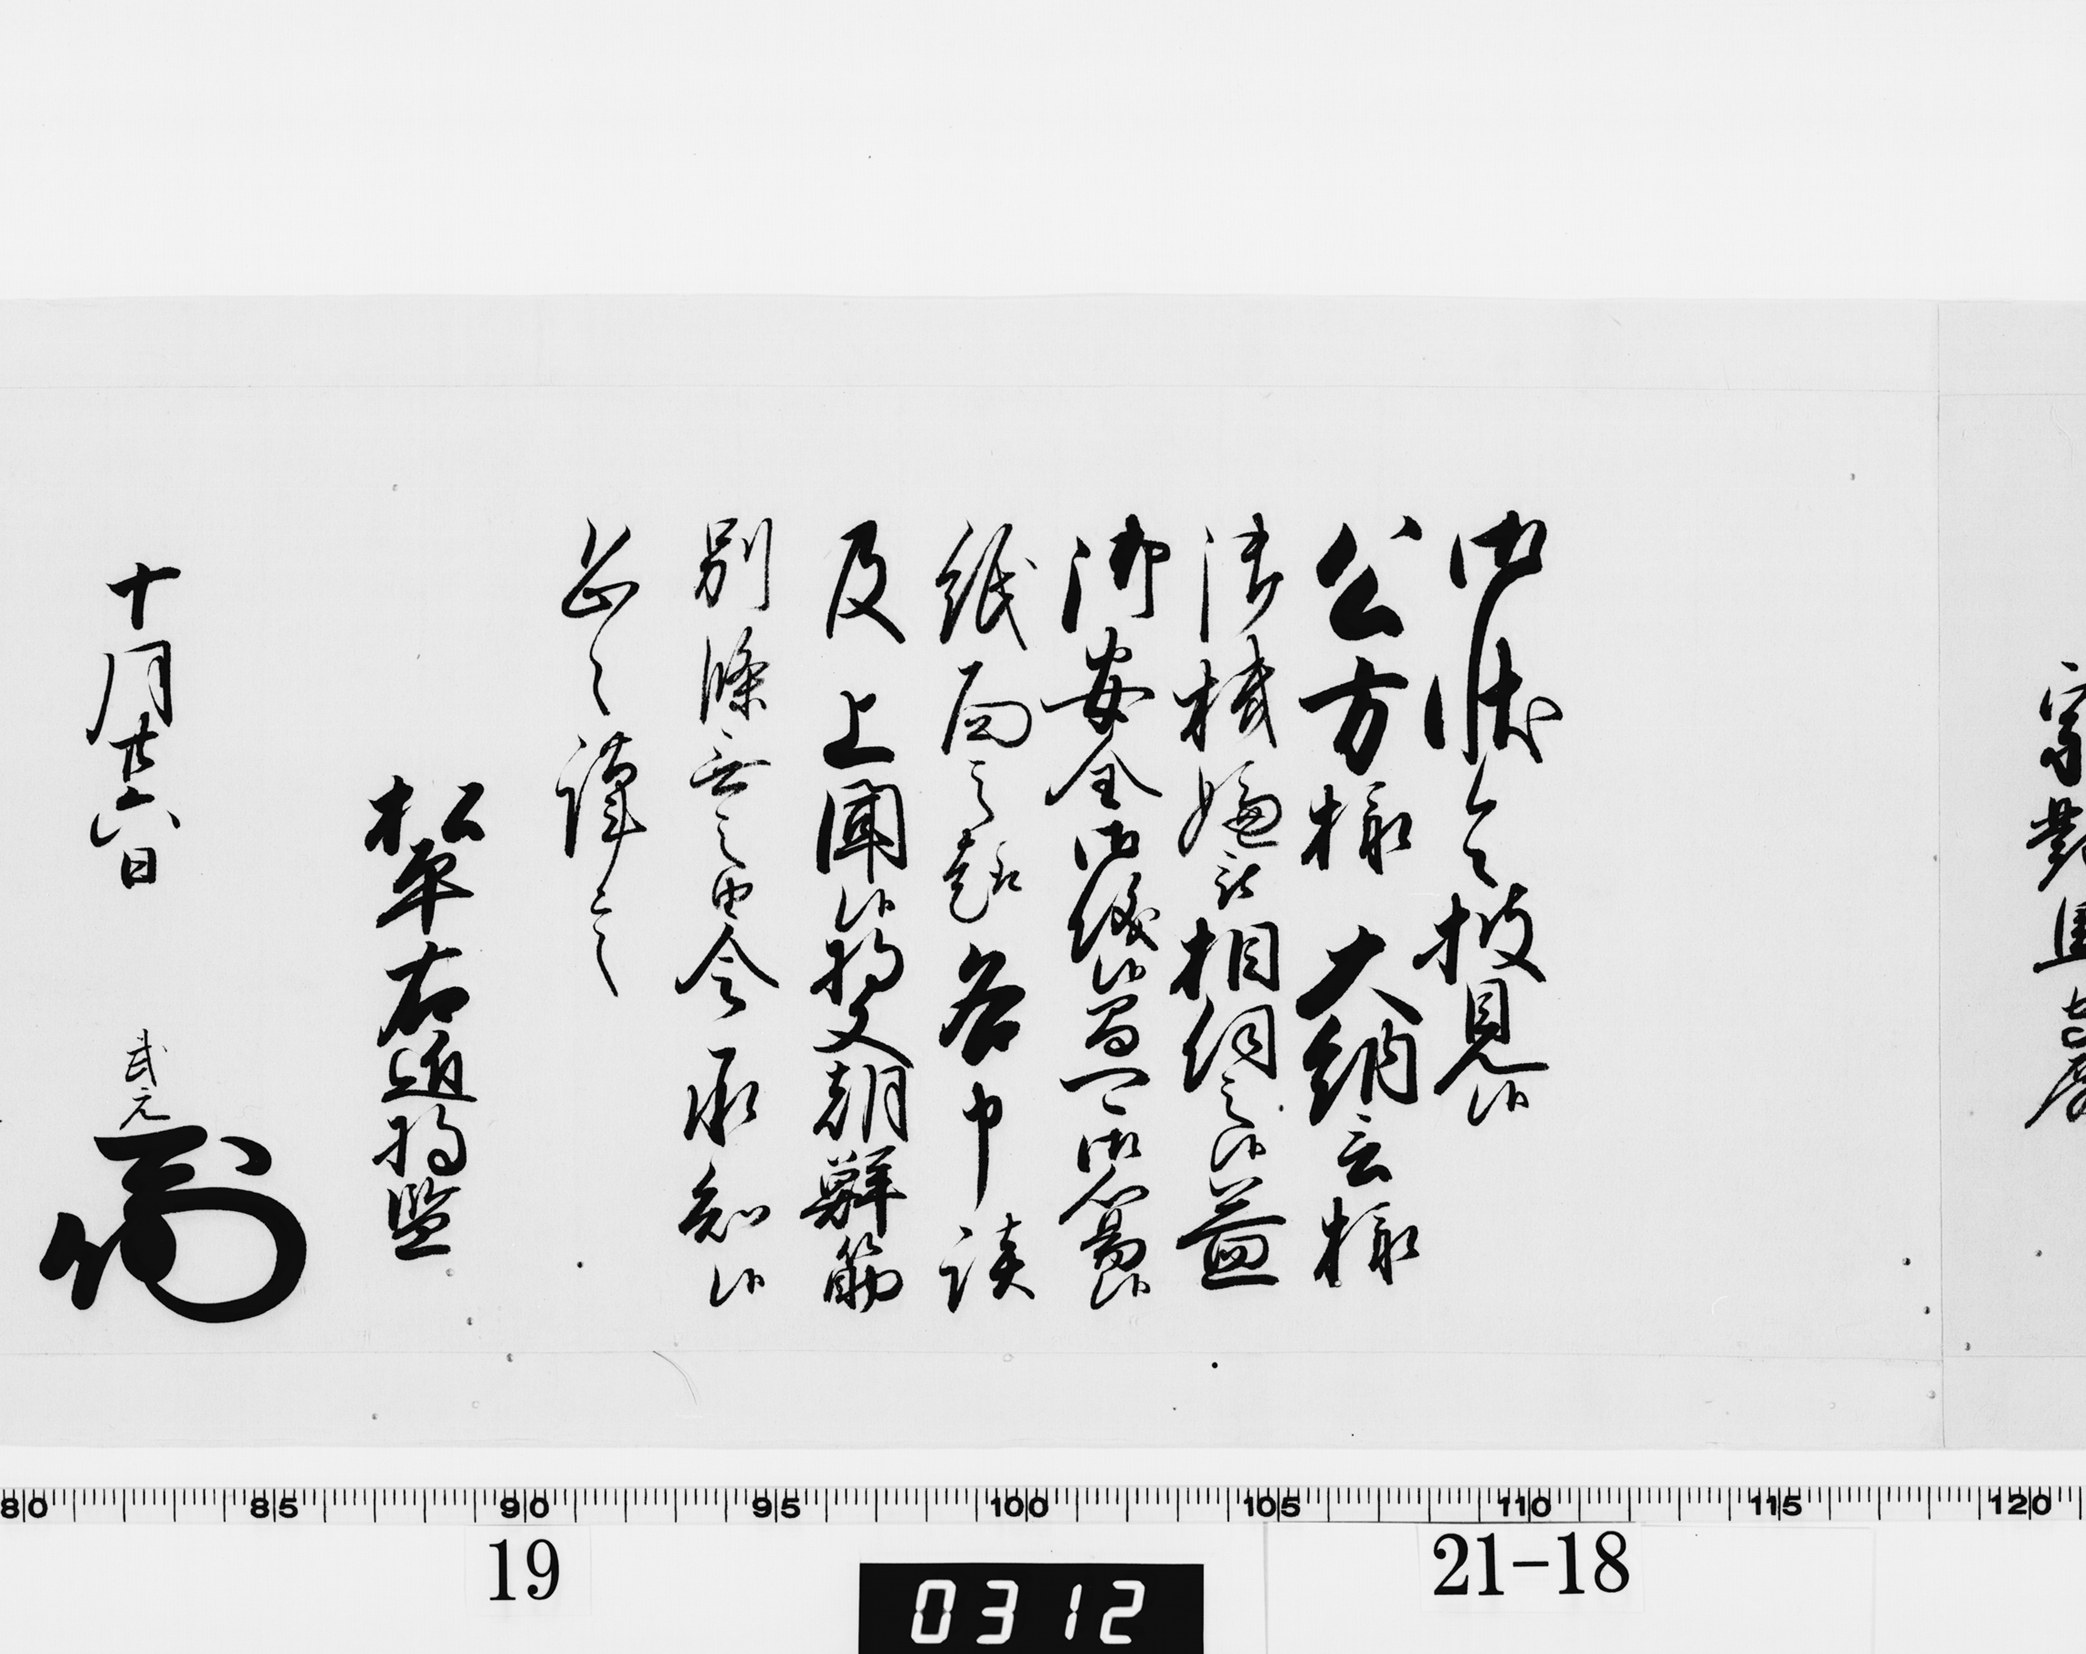 宗對馬守殿
御状令披見候
公方様　大納言様
御機嫌被相伺之候益
御安全御儀候間可御心易候
紙面之趣各申談
及　上聞候將又朝鮮筋
別條無之由令承知候
恐々謹言
松平右近將監
十月廿六日　武元
80 85 90 95 100 105 110 115 120
19
0312
21-18